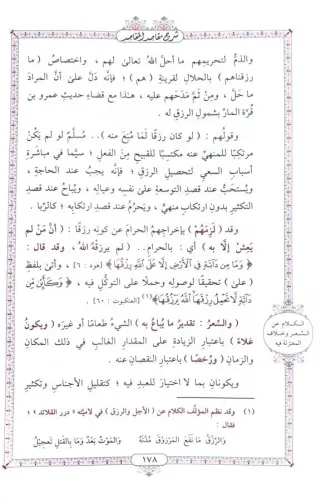 شرح مقاصد المقاصد
والذمِّ لتحريمهم ما أحلَّ اللهُ تعالى لهم ، واختصاصُ ( ما
رزقناهم ) بالحلال لقرينةِ ( هم ) ؛ فإنَّه دلَّ على أنَّ المرادَ
ما حَلَّ ، ومِنْ ثَمَّ مَدَحَهم عليه ، هذا مع قضاءِ حديثِ عمرو بن
قُرَّةَ المارِّ بشمولِ الرزق له .
وقولُهم : ( لو كان رزقًا لَمَا مُنِعَ منه ) .. مُسلَّمٌ لو لم يكُنْ
مرتكِبًا للمنهيِّ عنه مكتسِبًا للقبيح مِنَ الفعلِ ؛ سيَّما في مباشرةِ
أسبابِ السعي لتحصيلِ الرزق ؛ فإنَّه يجبُ عند الحاجة ،
ويُستحَبُّ عند قصدِ التوسعةِ على نفسِه وعيالِه ، ويُباحُ عند قصدِ
التكثير بدون ارتكابِ منهيٍّ ، ويَحرُمُ عند قصدِ ارتكابِه ؛ كالرِّبا .
وقد ( لَزِمَهُمْ ) بإخراجِهم الحرامَ عن كونِه رزقًا : ( أنَّ مَنْ لم
يَعِشْ إلَّا به ) أي : بالحرام .. ( لم يرزقْهُ اللهُ ، وقد قال :
﴿ وَمَا مِن دَآبَّةٍ فِي ٱلْأَرْضِ إِلَّا عَلَى ٱللَّهِ رِزْقُهَا ﴾ [هود : ٦] ، وأتى بلفظِ
( على ) تحقيقًا لوصولِه وحملًا على التوكُّلِ فيه ، ﴿ وَكَأَيِّن مِّن
دَآبَّةٍ لَّا تَحْمِلُ رِزْقَهَا ٱللَّهُ يَرْزُقُهَا ﴾ (١) [العنكبوت : ٦٠] .
الكلام عن
السعر وخلاف
المعتزلة فيه
( والسِّعرُ : تقديرُ ما يُباعُ به ) الشيءُ طعامًا أو غيرَه ، ( ويكونُ
غلاءً ) باعتبار الزيادةِ على المقدارِ الغالبِ في ذلك المكانِ
والزمانِ ( ورُخصًا ) باعتبار النقصانِ عنه .
ويكونانِ بما لا اختيارَ للعبدِ فيه ؛ كتقليلِ الأجناسِ وتكثيرِ
(١) وقد نظم المؤلِّف الكلام عن ( الأجل والرزق ) في لاميَّته « درر القلائد » ؛
فقال :
وَالرِّزْقُ مَا نَفَعَ المَرْزُوقَ مُدَّتَهُ وَالمَوْتُ بَعْدُ وَمَا بِالقَتْلِ تَعْجِيلُ
١٧٨